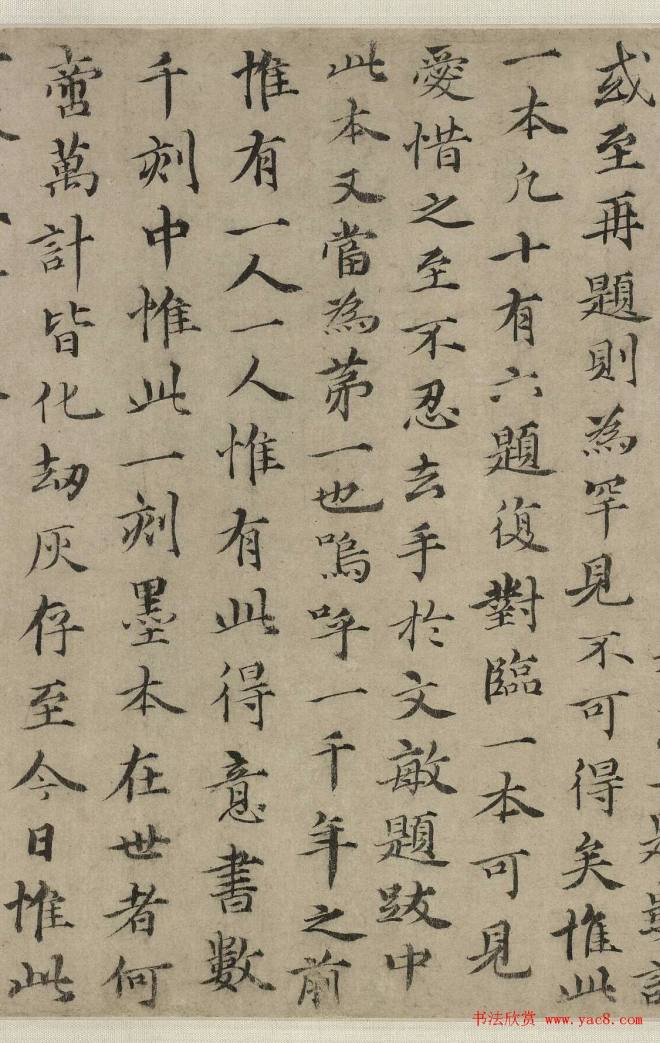 或至再題則為罕見不可得矣惟此
一本凡十有六題復對臨一本可見
愛惜之至不忍去手於文敏題跋中
此本又當為苐一也嗚呼一千年之前
惟有一人一人惟有此得意書數
千刻中惟此一刻墨本在世者何
啻萬計皆化劫灰存至今日惟此
书法欣赏 www.yac8.com